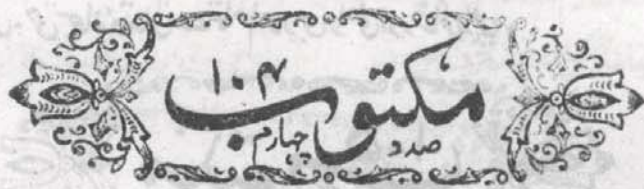 مکتوب ۱۰۴
صد و چہارم